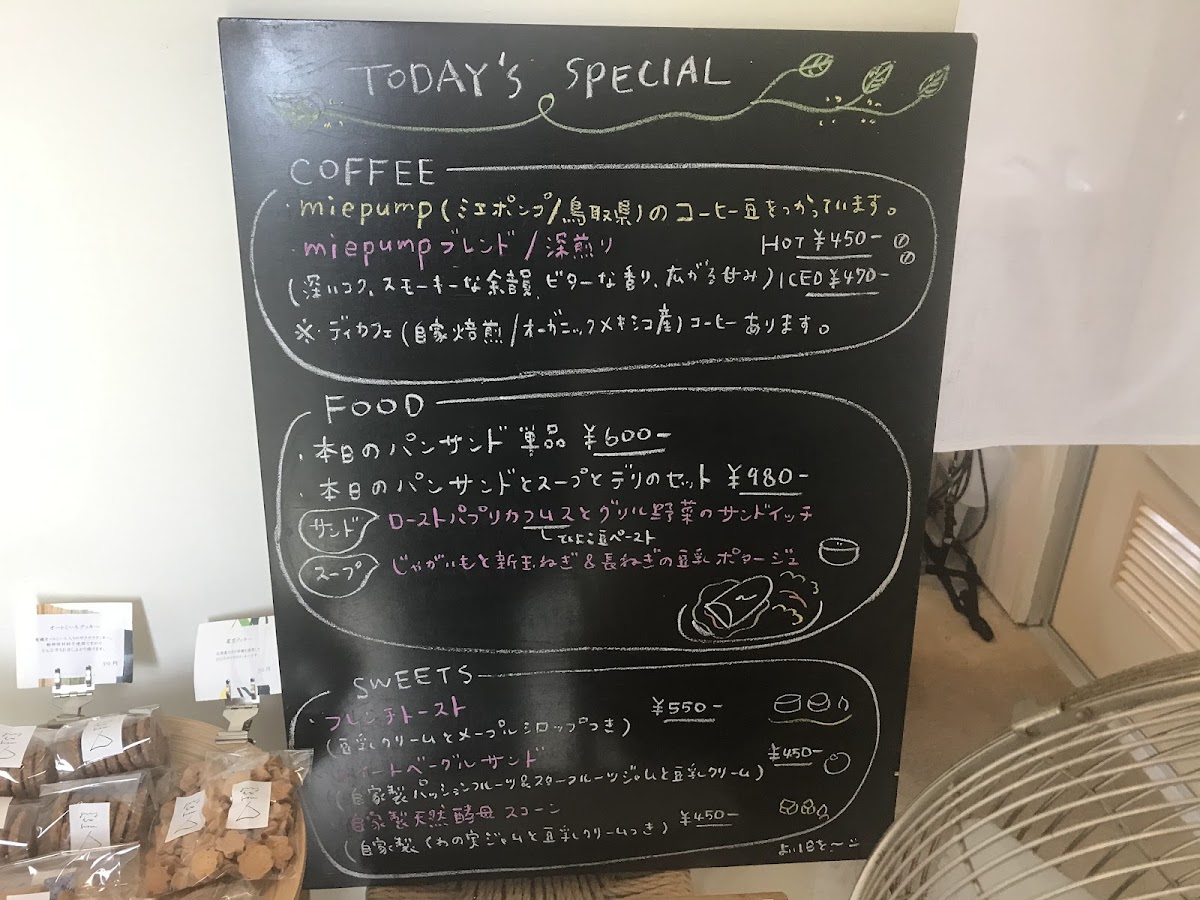 TODAY's SPECIAL
COFFEE
・miepump(ミエポンプ/鳥取県)のコーヒー豆をつかっています。
・miepumpブレンド/深煎り HOT ¥450-
(深いコク、スモーキーな余韻、ビターな香り、広がる甘み) ICED ¥470-
※・ディカフェ(自家焙煎/オーガニックメキシコ産)コーヒーあります。
FOOD
・本日のパンサンド 単品 ¥600-
・本日のパンサンドとスープとデリのセット ¥980-
サンド ローストパプリカフムスとグリル野菜のサンドイッチ
ひよこ豆ペースト
スープ じゃがいもと新玉ねぎ&長ねぎの豆乳ポタージュ
SWEETS
・フレンチトースト ¥550-
(豆乳クリームとメープルシロップつき)
スイートベーグルサンド ¥450-
(自家製パッションフルーツ&スターフルーツジャムと豆乳クリーム)
自家製天然酵母スコーン ¥450-
(自家製くわの実ジャムと豆乳クリームつき)
よい1日を〜
オートミールクッキー